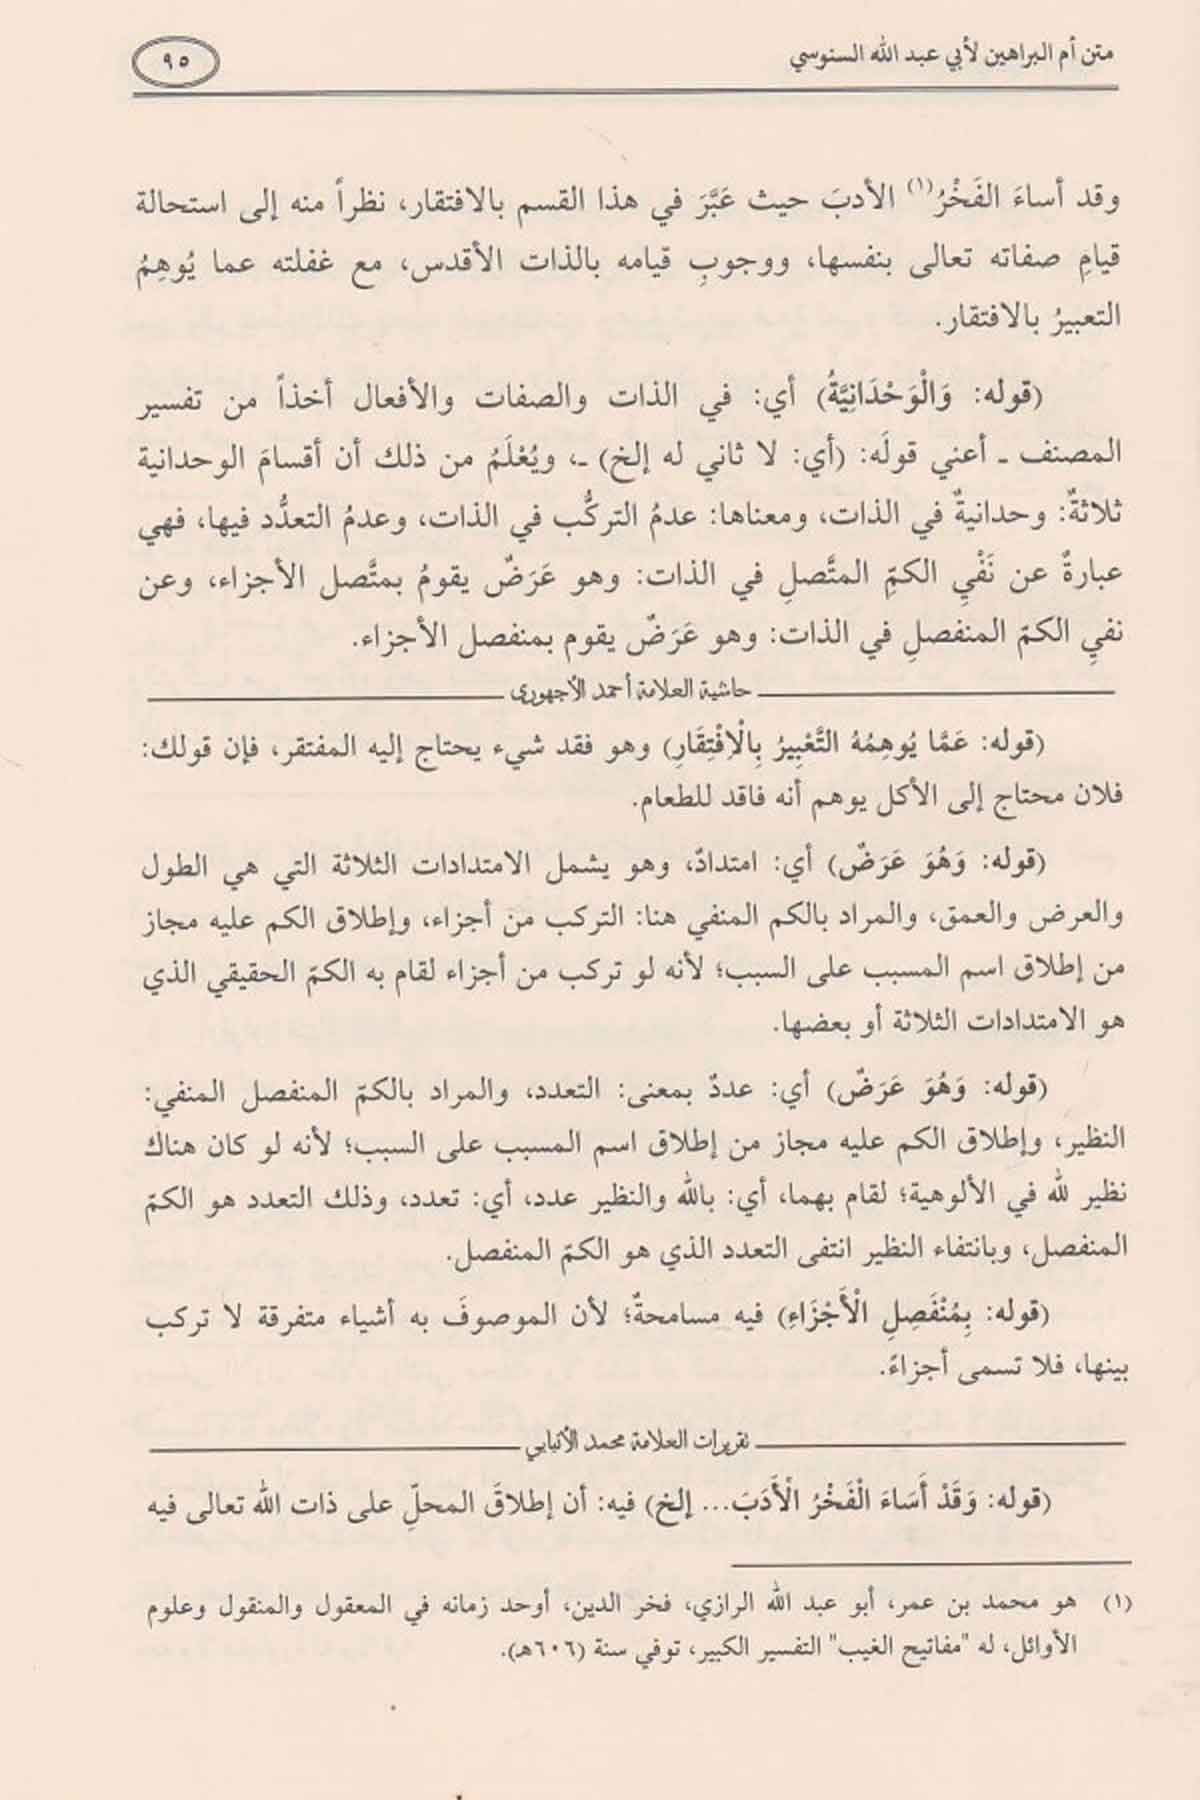 متن أم البراهين لأبي عبد الله السنوسي
٩٥
وقد أساءَ الفَخْرُ(١) الأدبَ حيث عَبَّرَ في هذا القسم بالافتقار، نظراً منه إلى استحالة
قيامِ صفاته تعالى بنفسها، ووجوبِ قيامه بالذات الأقدس، مع غفلته عما يُوهِمُ
التعبيرُ بالافتقار.
(قوله: وَالْوَحْدَانِيَّةُ) أي: في الذات والصفات والأفعال أخذاً من تفسير
المصنف ـ أعني قولَه: (أي: لا ثاني له إلخ) ـ، ويُعْلَمُ من ذلك أن أقسامَ الوحدانية
ثلاثةٌ: وحدانيةٌ في الذات، ومعناها: عدمُ التركُّب في الذات، وعدمُ التعدُّد فيها، فهي
عبارةٌ عن نَفْيِ الكمِّ المتَّصلِ في الذات: وهو عَرَضٌ يقومُ بمتَّصل الأجزاء، وعن
نفيِ الكمّ المنفصلِ في الذات: وهو عَرَضٌ يقوم بمنفصل الأجزاء.
حاشية العلامة أحمد الأجهوري
(قوله: عَمَّا يُوهِمُهُ التَّعْبِيرُ بِالْاِفْتِقَارِ) وهو فقد شيء يحتاج إليه المفتقر، فإن قولك:
فلان محتاج إلى الأكل يوهم أنه فاقد للطعام.
(قوله: وَهُوَ عَرَضٌ) أي: امتدادٌ، وهو يشمل الامتدادات الثلاثة التي هي الطول
والعرض والعمق، والمراد بالكم المنفي هنا: التركب من أجزاء، وإطلاق الكم عليه مجاز
من إطلاق اسم المسبب على السبب؛ لأنه لو تركب من أجزاء لقام به الكمّ الحقيقي الذي
هو الامتدادات الثلاثة أو بعضها.
(قوله: وَهُوَ عَرَضٌ) أي: عددٌ بمعنى: التعدد، والمراد بالكمّ المنفصل المنفي:
النظير، وإطلاق الكم عليه مجاز من إطلاق اسم المسبب على السبب؛ لأنه لو كان هناك
نظير لله في الألوهية؛ لقام بهما، أي: بالله والنظير عدد، أي: تعدد، وذلك التعدد هو الكمّ
المنفصل، وبانتفاء النظير انتفى التعدد الذي هو الكمّ المنفصل.
(قوله: بِمُنْفَصِلِ الْأَجْزَاءِ) فيه مسامحةٌ؛ لأن الموصوفَ به أشياء متفرقة لا تركب
بينها، فلا تسمى أجزاءً.
تقريرات العلامة محمد الأنبابي
(قوله: وَقَدْ أَسَاءَ الْفَخْرُ الْأَدَبَ... إلخ) فيه: أن إطلاقَ المحلِّ على ذات الله تعالى فيه
(١) هو محمد بن عمر، أبو عبد الله الرازي، فخر الدين، أوحد زمانه في المعقول والمنقول وعلوم
الأوائل، له "مفاتيح الغيب" التفسير الكبير، توفي سنة (٦٠٦هـ).